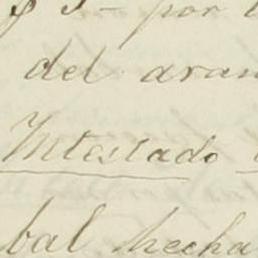 por
del aran
Intestado
bal hecha